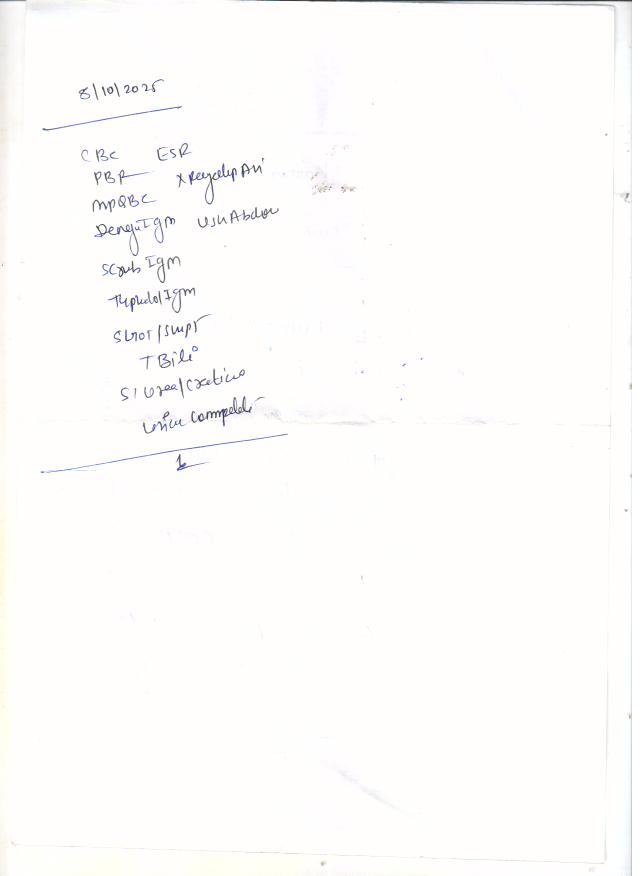 8/10/2025
CBC ESR
PBF X Ray chest PA
MPQBC
Dengu IgM USh Abdom
Scrub IgM
Typhidot IgM
SGOT/SGPT
T Bili
S/Urea/Creatine
Urine Complete